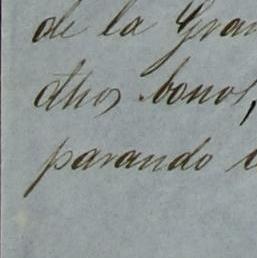 de la Gran
dhos bonos,
parando